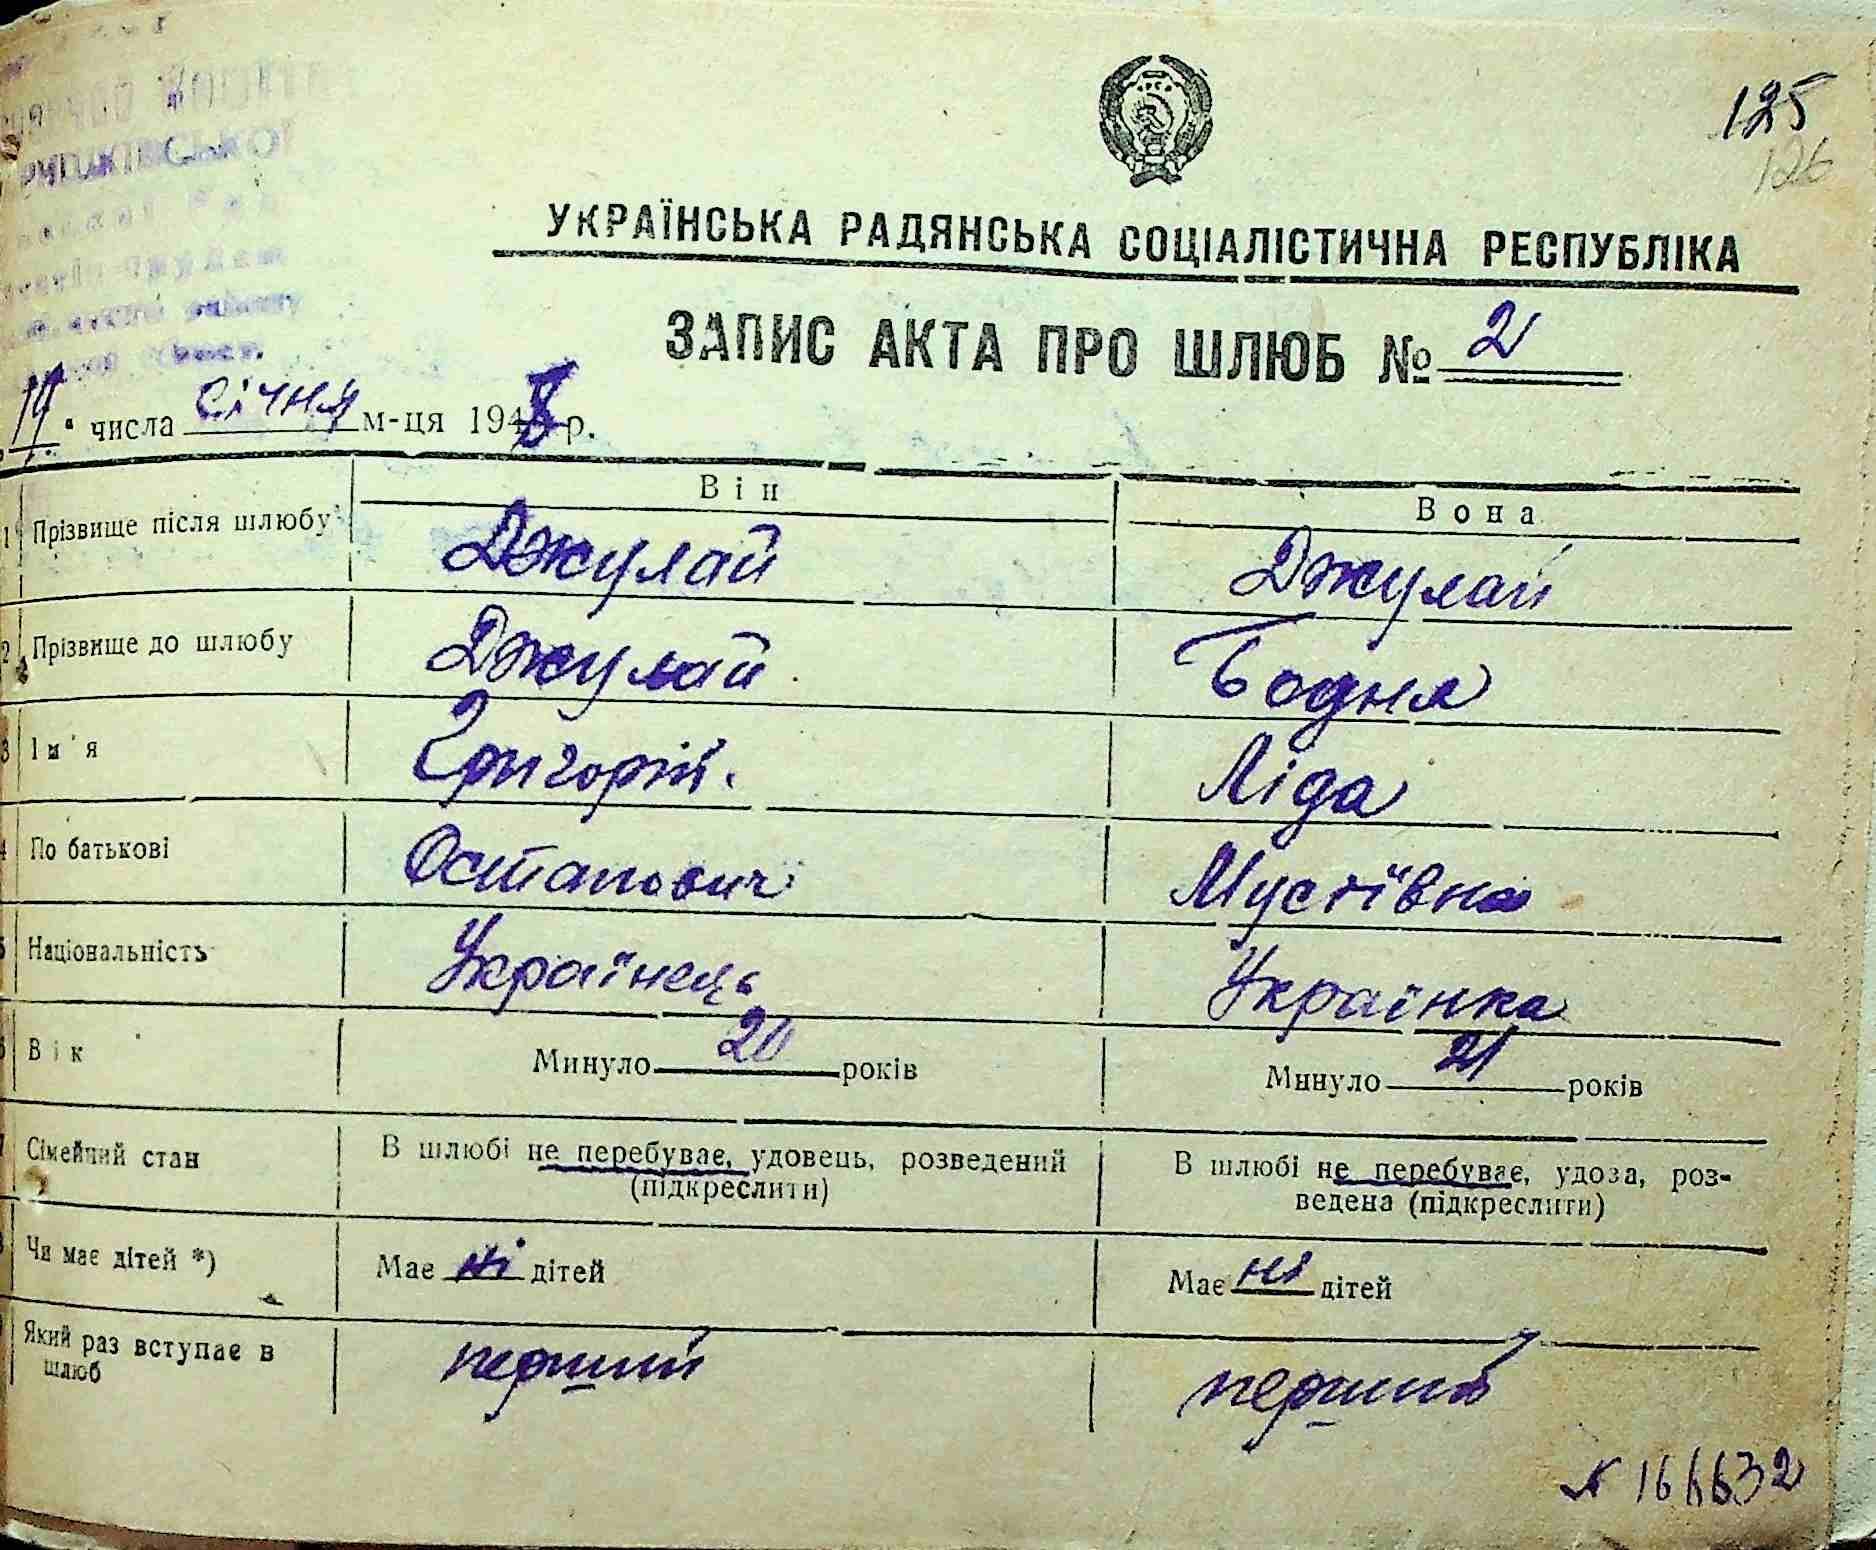 125
126
УКРАЇНСЬКА РАДЯНСЬКА СОЦІАЛІСТИЧНА РЕСПУБЛІКА
ЗАПИС АКТА ПРО ШЛЮБ № 2
числа січня м-ця 1948 р.
Він Вона
1 Прізвище після шлюбу Джулай Джулай
2 Прізвище до шлюбу Джулай Бодня
3 Ім'я Григорій Ліда
4 По батькові Остапович Мусіївна
5 Національність Українець Українка
6 Вік Минуло 20 років Минуло 21 років
7 Сімейний стан В шлюбі не перебуває, удовець, розведений (підкреслити) В шлюбі не перебуває, удова, роз-
ведена (підкреслити)
Чи має дітей *) Має ні дітей Має ні дітей
Який раз вступає в шлюб перший перший
№ 166632